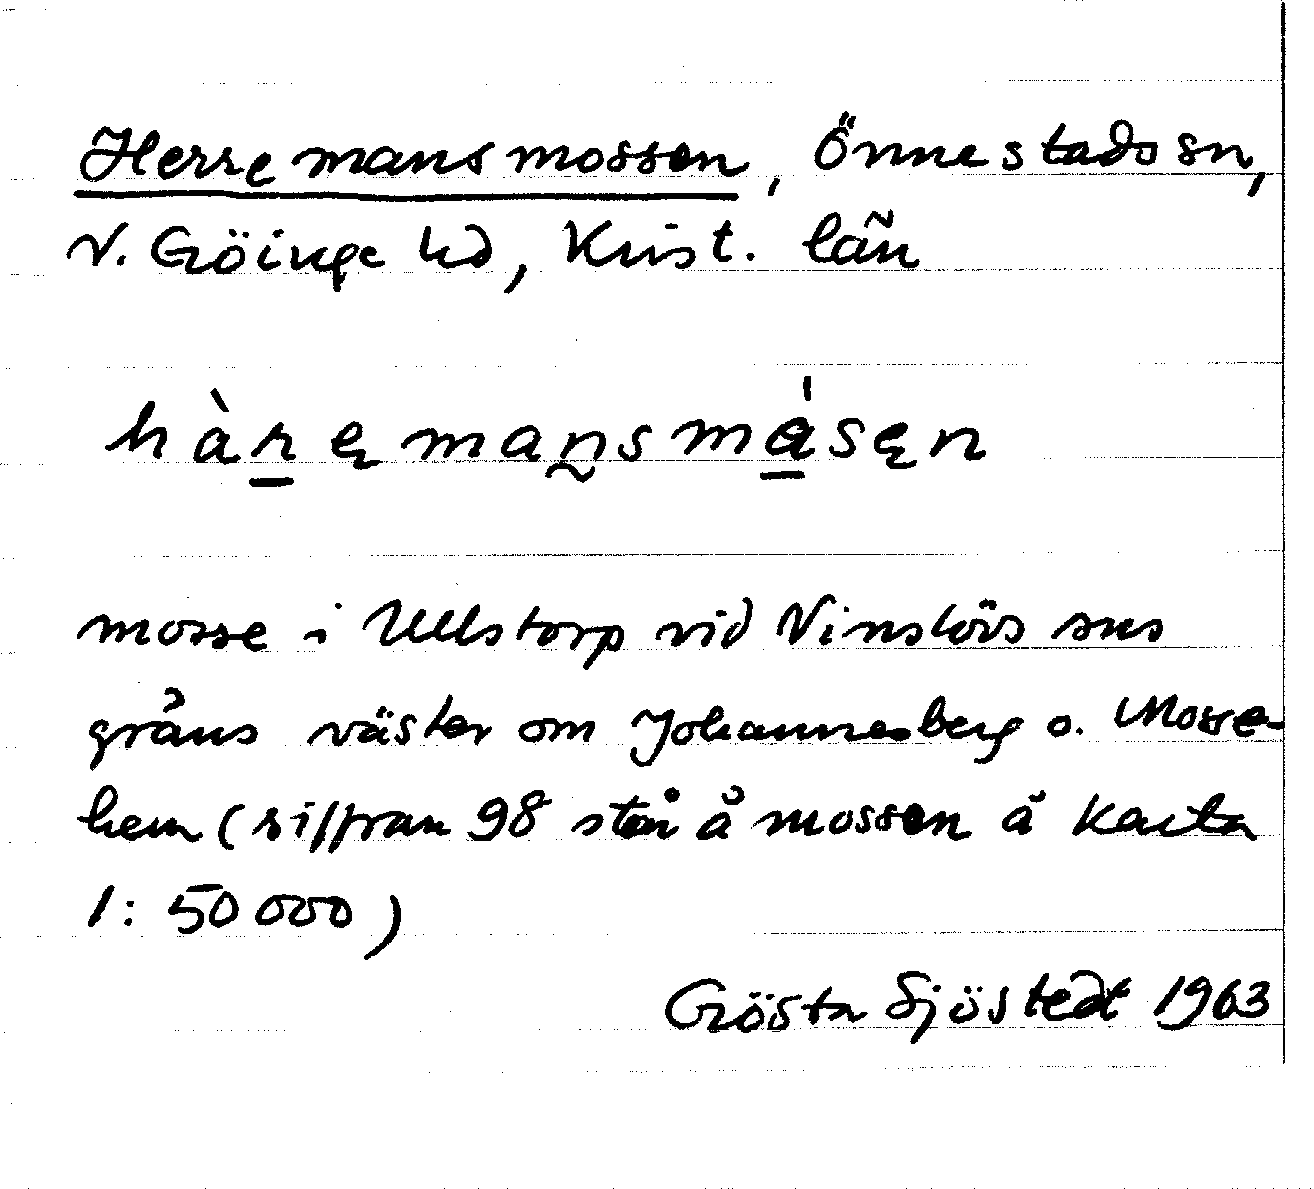 Herremansmossen, Önnestads sn,
V. Göinge hd, Krist. län
hàṟęmañsmá̱sęn
mosse i Ullstorp vid Vinslövs sns
gräns väster om Johannesberg o. Mosse-
hem (siffran 98 står å mossen å karta
1:50 000)
Gösta Sjöstedt 1963